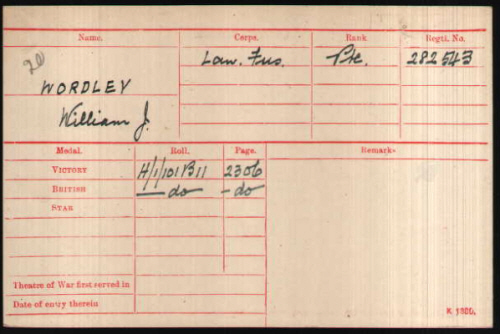 Name. Corps. Rank. Regtl. No.
20
WORDLEY Lan. Fus. Pte. 282543
William J.
Medal. Roll. Page. Remarks
VICTORY H/1/101B11 2306
BRITISH —do —do
STAR
Theatre of War first served in
Date of entry therein
K 1380.